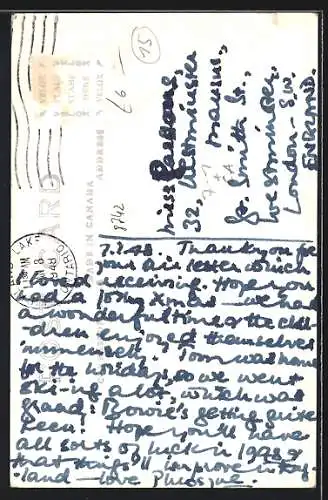 7.1.48. Thank you for
your air letter which
I loved receiving. Hope you
had a jolly Xmas — we had
a wonderful time & the chil-
dren enjoyed themselves
immensely. Tom was home
for the holidays, so we went
ski-ing a lot, which was
grand! getting quite
keen! Hope you'll have
all sorts of luck in 1948 &
that things'll improve in Eng-
land — love
Miss
32, Westminster
Mansions,
Gt. Smith St.,
Westminster,
London - S.W.
ENGLAND.
POST CARD
MADE IN CANADA
ADDRESS
ONTARIO
15
8742